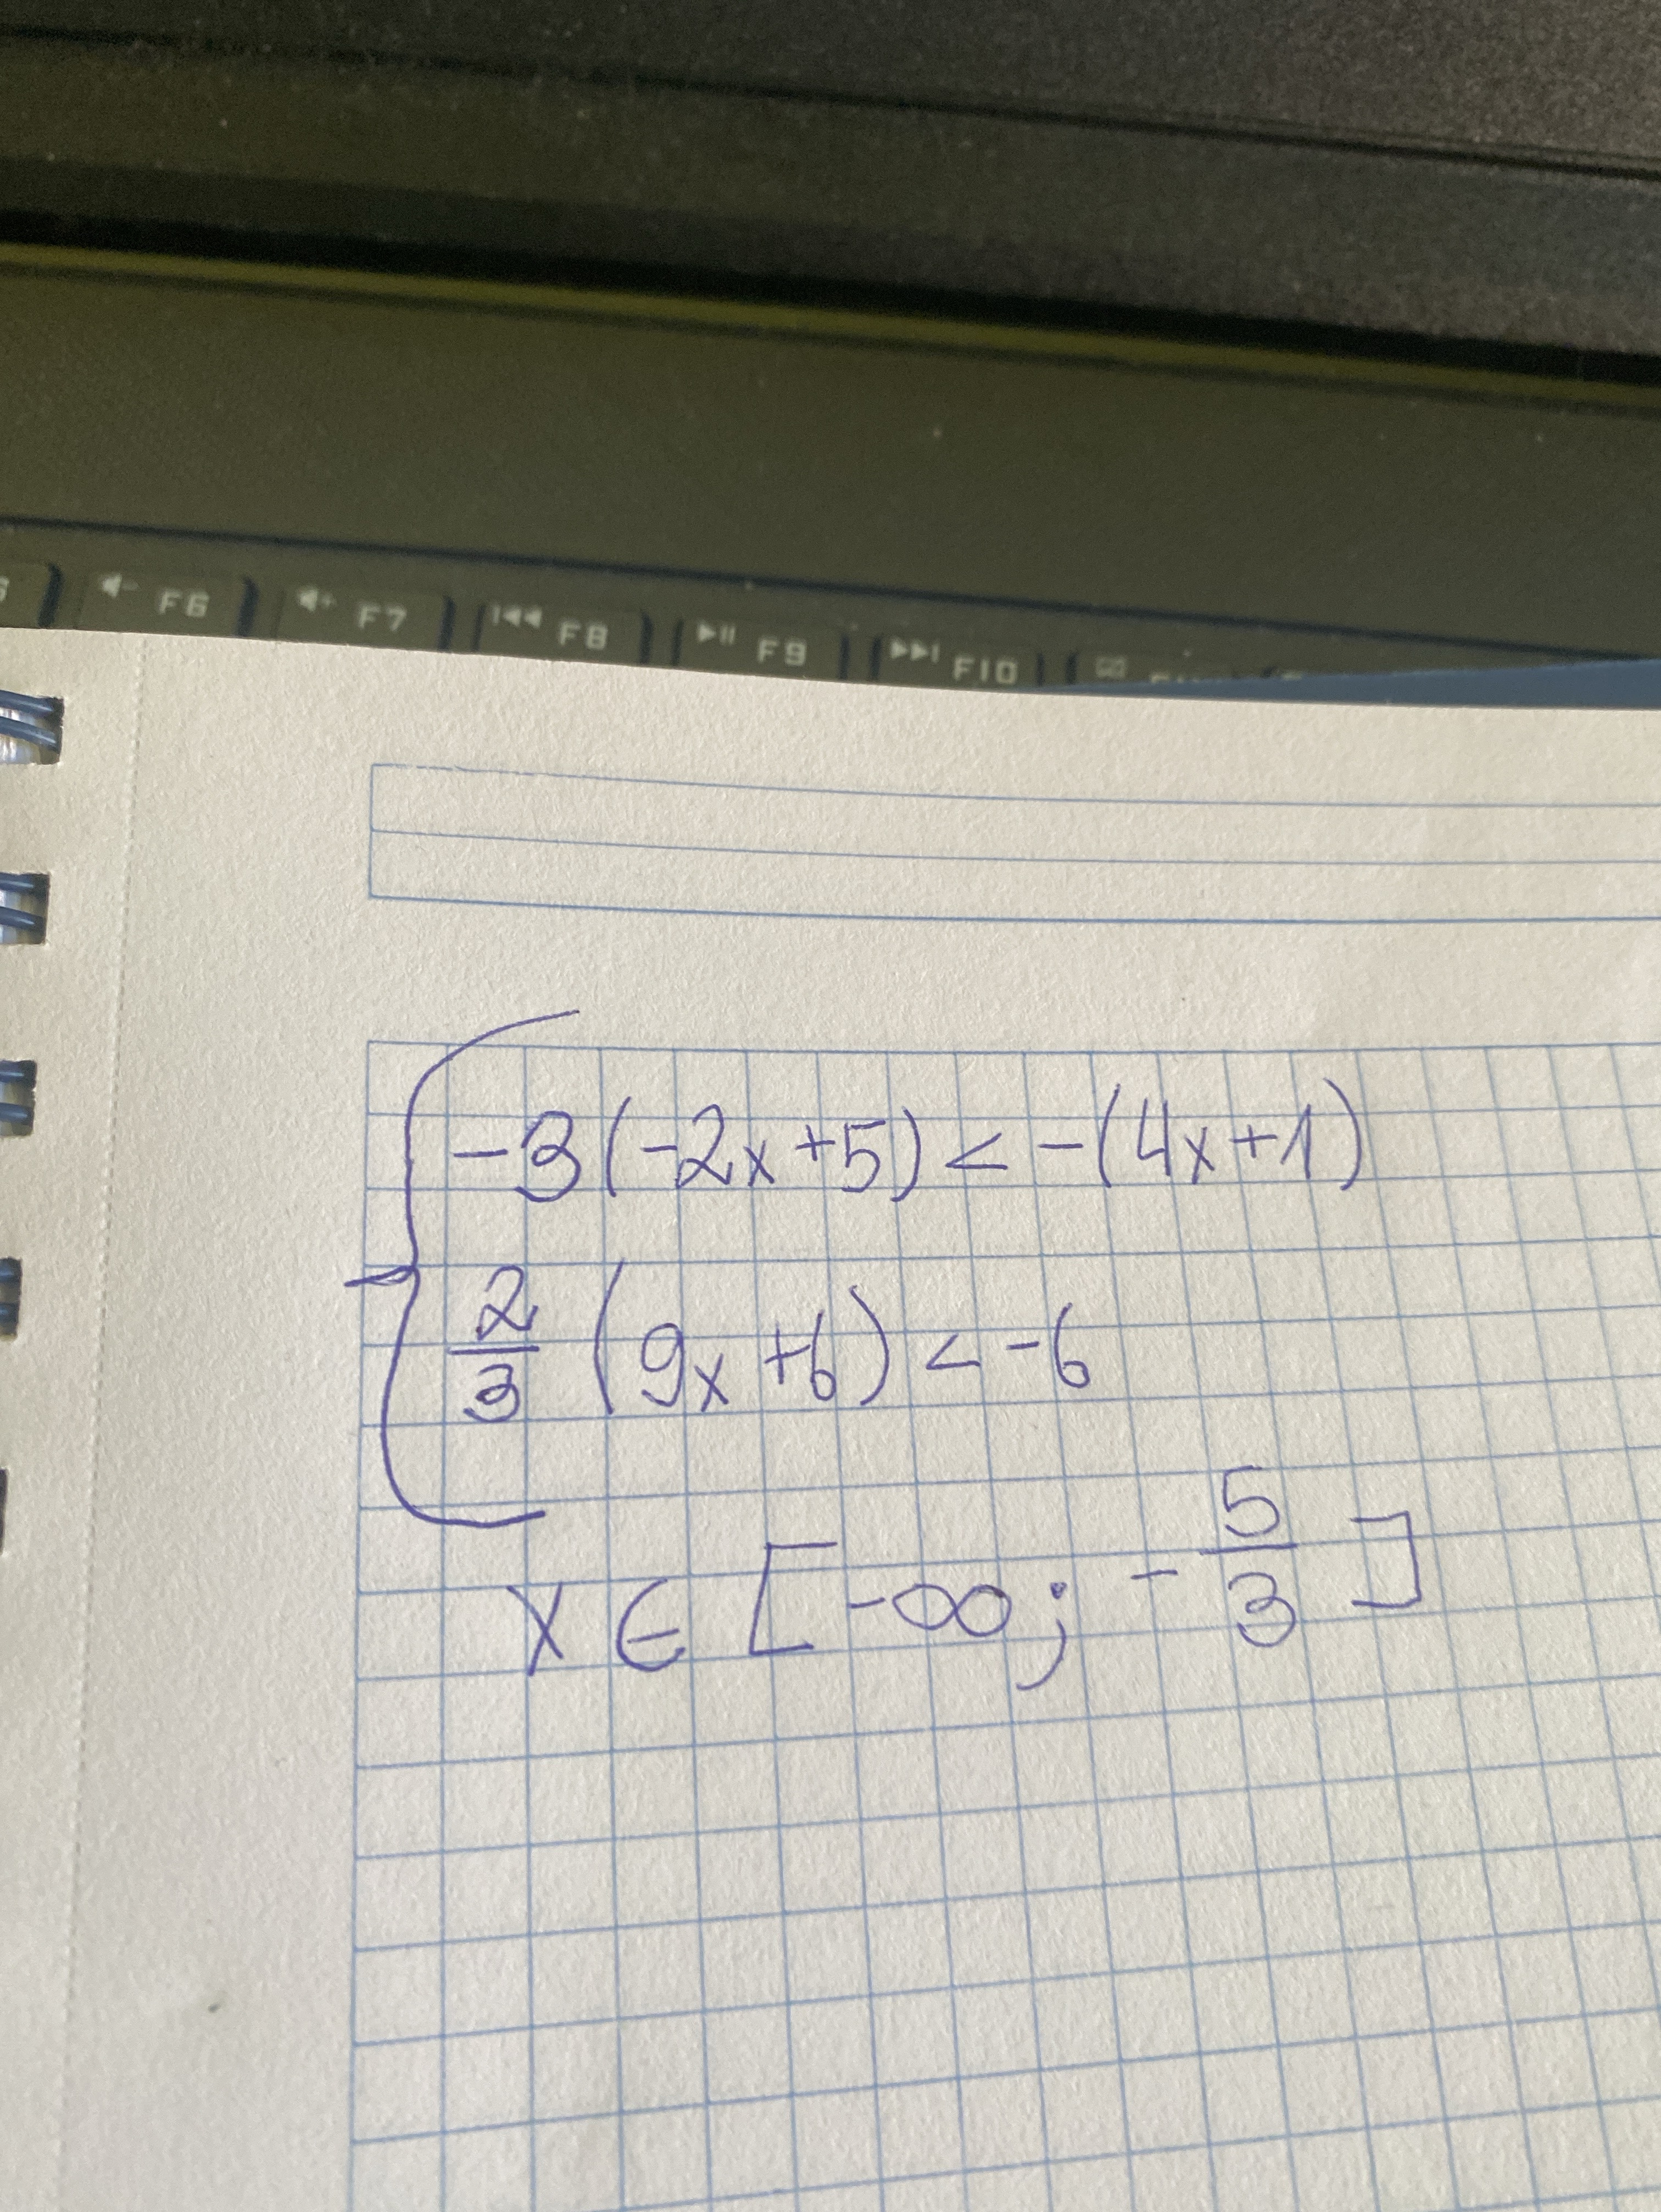 F6 F7 F8 F9 F10
-3(-2x+5) < -(4x+1)
2/3 (9x+6) < -6
x ∈ [-∞; -5/3]